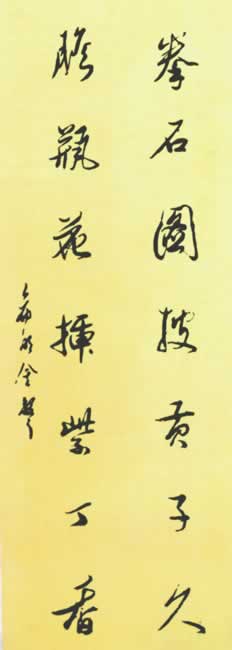 拳石圖披黄子久
膽瓶花插紫丁香